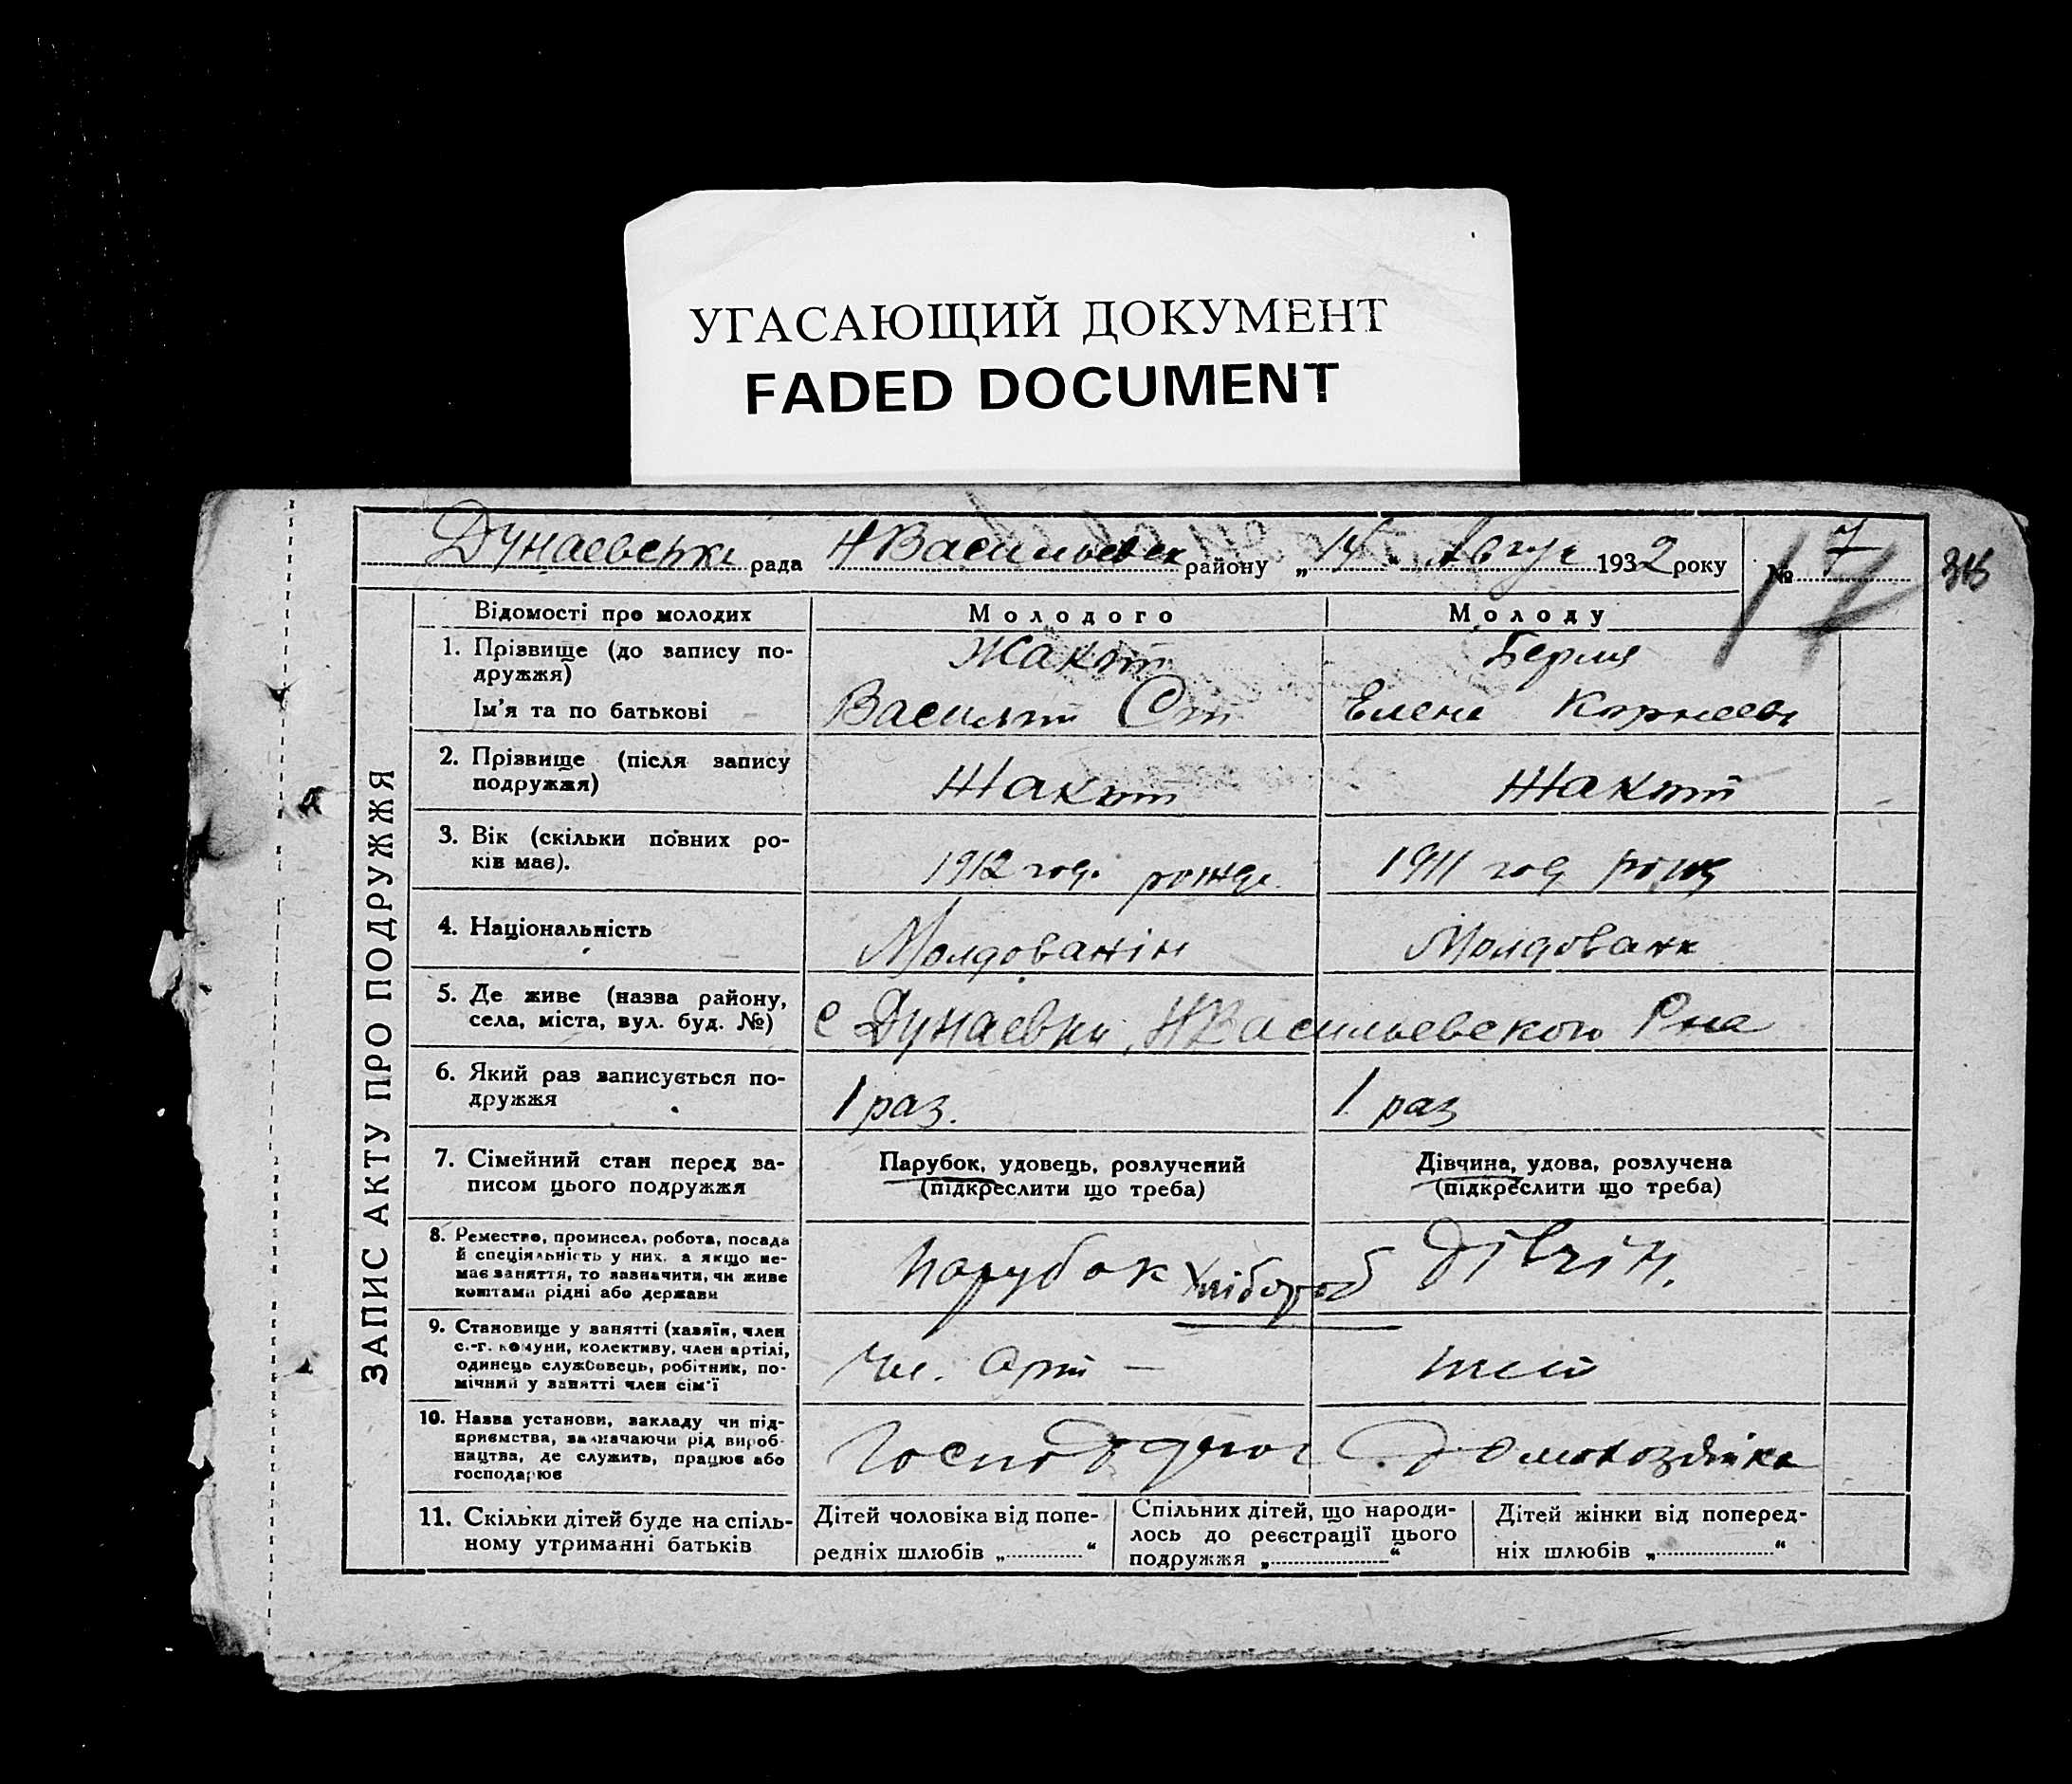 УГАСАЮЩИЙ ДОКУМЕНТ
FADED DOCUMENT
Дунаевська рада Н Васильевск району „14“ Авгус 1932 року № 7
17
ЗАПИС АКТУ ПРО ПОДРУЖЖЯ
Відомості про молодих Молодого Молоду
1. Прізвище (до запису по-
дружжя) Жакот
Ім'я та по батькові Василий Ст Елена Корнеев
2. Прізвище (після запису
подружжя) Жакот Жакот
3. Вік (скільки повних ро-
ків має). 1912 год. рожде. 1911 год рожд
4. Національність Молдованін Молдованк
5. Де живе (назва району,
села, міста, вул. буд. №) с Дунаевки, Н Васильевского Рна
6. Який раз записується по-
дружжя 1 раз. 1 раз
7. Сімейний стан перед за-
писом цього подружжя
Парубок, удовець, розлучений
(підкреслити що треба)
Дівчина, удова, розлучена
(підкреслити що треба)
8. Ремество, промисел, робота, посада
й спеціяльність у них, а якщо не-
має заняття, то зазначити, чи живе
коштами рідні або держави
Парубок хлібороб Дівчін.
9. Становище у занятті (хазяїн, член
с.-г. комуни, колективу, член артілі,
одинець службовець, робітник, по-
мічний у занятті член сім'ї
Чл. Арт —
10. Назва установи, закладу чи під-
приємства, зазначаючи рід вироб-
ництва, де служить, працює або
господарює
Домохозяйка
11. Скільки дітей буде на спіль-
ному утриманні батьків
Дітей чоловіка від попе-
редніх шлюбів „ “
Спільних дітей, що народи-
лось до реєстрації цього
подружжя „ “
Дітей жінки від поперед-
ніх шлюбів „ “